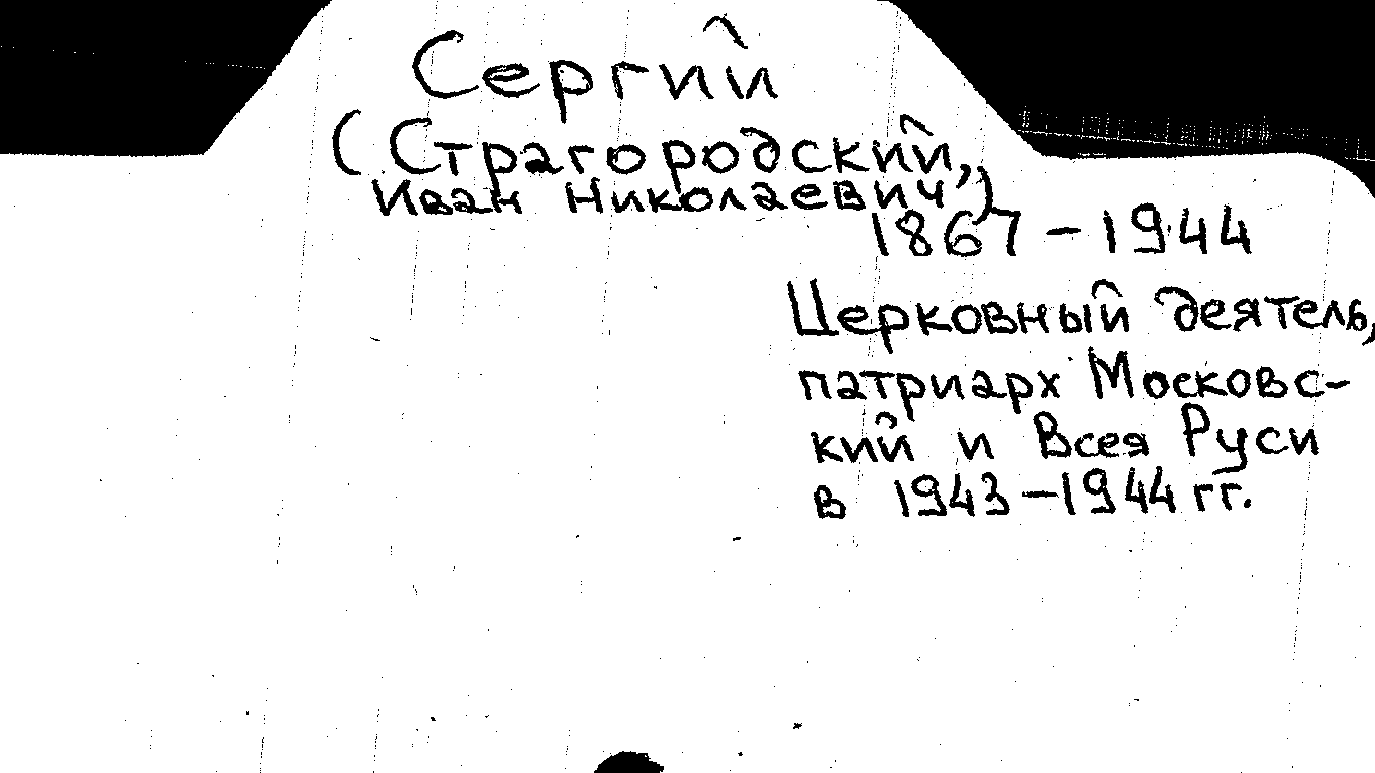 Сергий
(Страгородский,
Иван Николаевич,)
1867 – 1944
Церковный деятель,
патриарх Московс-
кий и Всея Руси
в 1943 – 1944 гг.